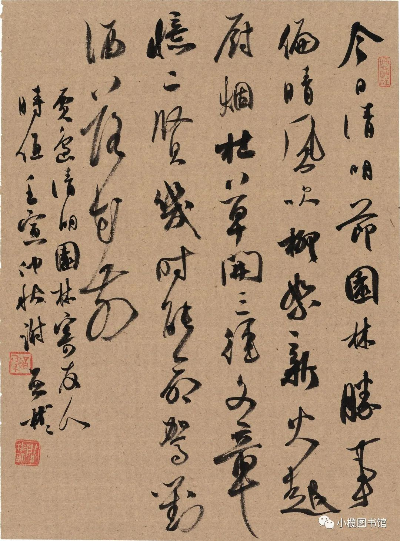 今日清明節園林勝事
偏晴風吹柳絮新火起
厨烟杜草開三徑文章
憶二賢幾時能命駕對
酒落花前
賈島清明園林寄友人
時值壬寅仲秋謝
小榄图书馆